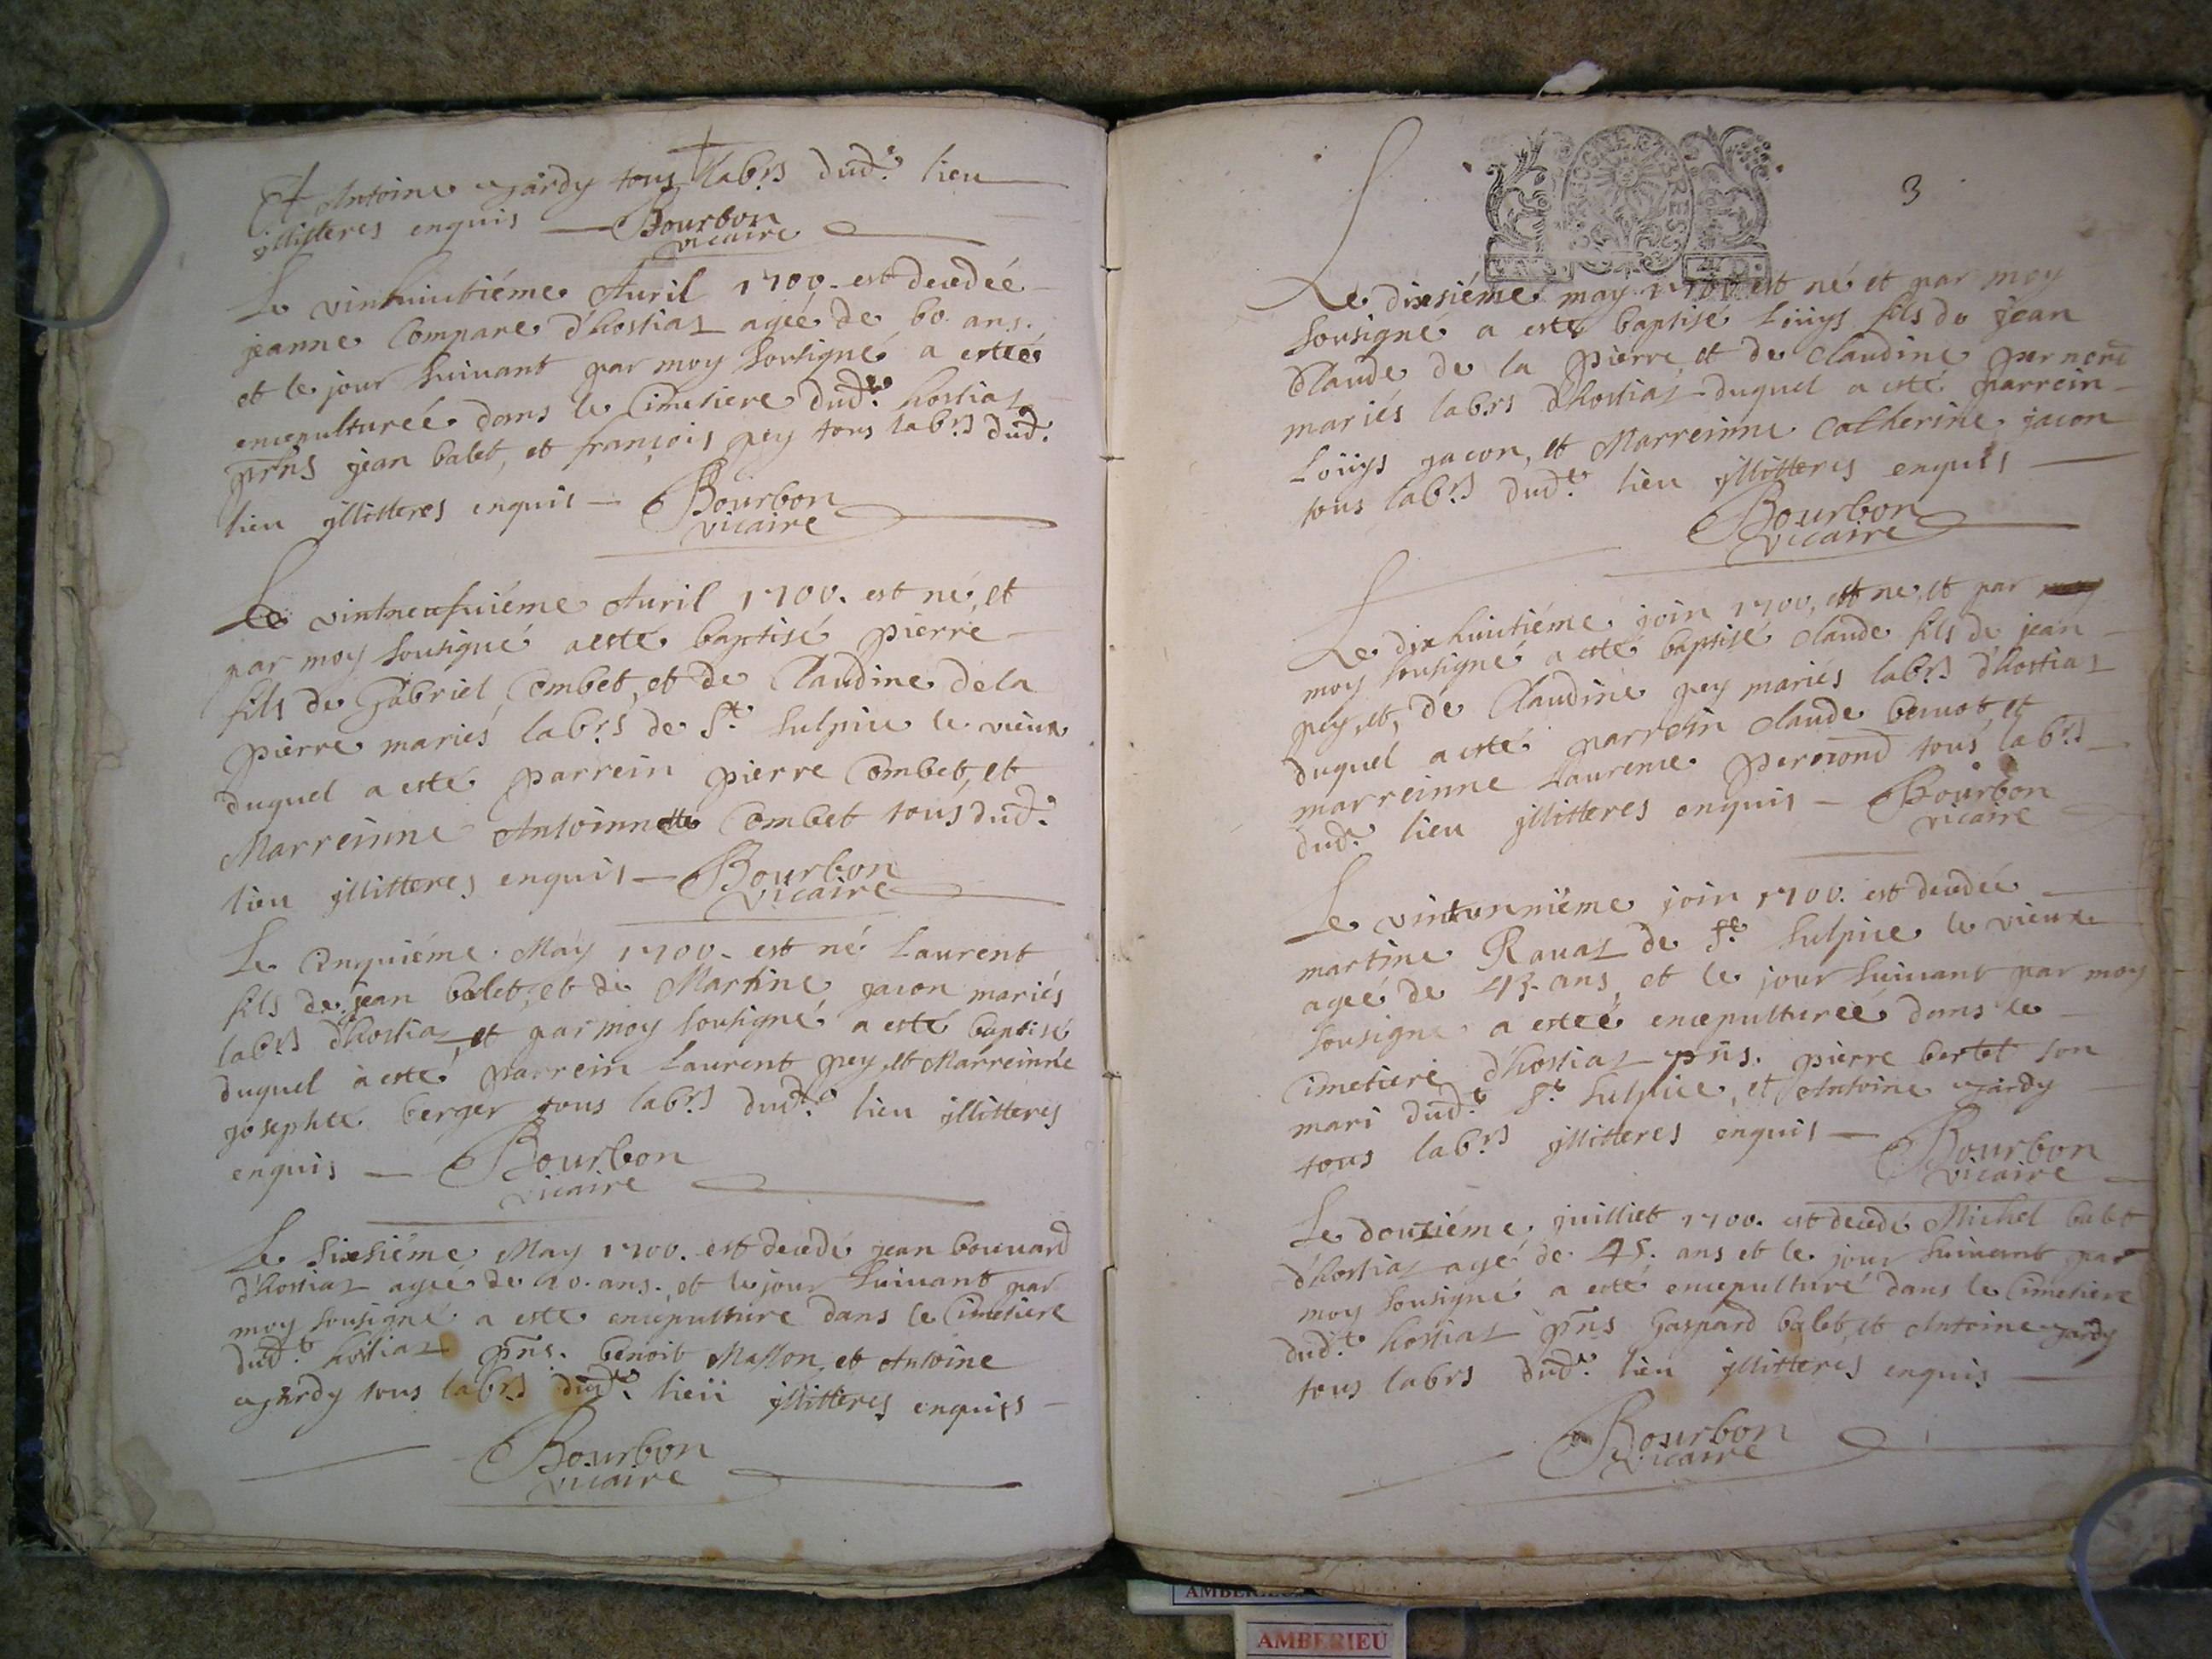 Et Antoine ogardy tous labrs dudt. lieu
jllitteres enquis — Bourbon
vicaire
Le vinthuictiéme Auril 1700. est decedeé
jeanne Compare d'hostiaz ageé de 60 ans.
et le jour suiuant par moy sousigné a esteé
encepultureé dans le Cimetiere dudt. hostiaz
prñs jean balet, et françois pey tous labrs dudt.
lieu jllitteres enquis — Bourbon
vicaire
Le vintneufuiéme Auril 1700. est né, et
par moy sousigné a esté baptisé pierre
fils de Gabriel Combet, et de Claudine dela
pierre mariés labrs de St. sulpice le vieux
duquel a esté parrein pierre Combet, et
Marreinne Antoinette Combet tous dudt.
lieu jllitteres enquis — Bourbon
vicaire
Le Cinquiéme May 1700. est né Laurent
fils de jean balet, et de Martine jacon mariés
labrs d'hostiaz, et par moy sousigné a esté baptisé
duquel a esté parrein Laurent pey, et Marreinne
josephte berger tous labrs dudt. lieu jllitteres
enquis — Bourbon
vicaire
Le Sixiéme May 1700. est decedé jean bouuard
d'hostiaz ageé de ans, et le jour suiuant par
moy sousigné a esté encepulturé dans le Cimetiere
dudt. hostiaz pñs. benoit Masson, et Antoine
ogardy tous labrs dudt. lieu jllitteres enquis —
Bourbon
vicaire
3
Le dixsiéme may 1700 est né et par moy
sousigné a esté baptisé Loüys fils de jean
Claude de la pierre, et de Claudine pernond
mariés labrs d'hostiaz duquel a esté parrein
Loüys jacon, et Marreinne Catherine jacon
tous labrs dudt. lieu jllitteres enquis —
Bourbon
vicaire
Le dixhuictiéme join 1700, est ne, et par
moy sousigné a esté baptisé Claude fils de jean
pey, et de Claudine pey mariés labrs d'hostiaz
duquel a esté parrein Claude et
marreinne Laurence pernond tous labrs
dudt. lieu jllitteres enquis — Bourbon
vicaire
Le vintunniéme join 1700. est decedeé
martine Rauaz de St. sulpice le vieux
ageé de ans, et le jour suiuant par moy
sousigné a esteé encepultureé dans le
Cimetiere d'hostiaz pñs. pierre bertet son
mari dudt. St. sulpice, et Antoine ogardy
tous labrs jllitteres enquis — Bourbon
vicaire
Le douziéme juilliet 1700. est decedé Michel balet
d'hostiaz agé de 45. ans et le jour suiuant par
moy sousigné a esté encepulturé dans le Cimetiere
dudt. hostiaz pñs Gaspard balet, et Antoine ogardy
tous labrs dudt. lieu jllitteres enquis —
Bourbon
vicaire
AMBERIEU